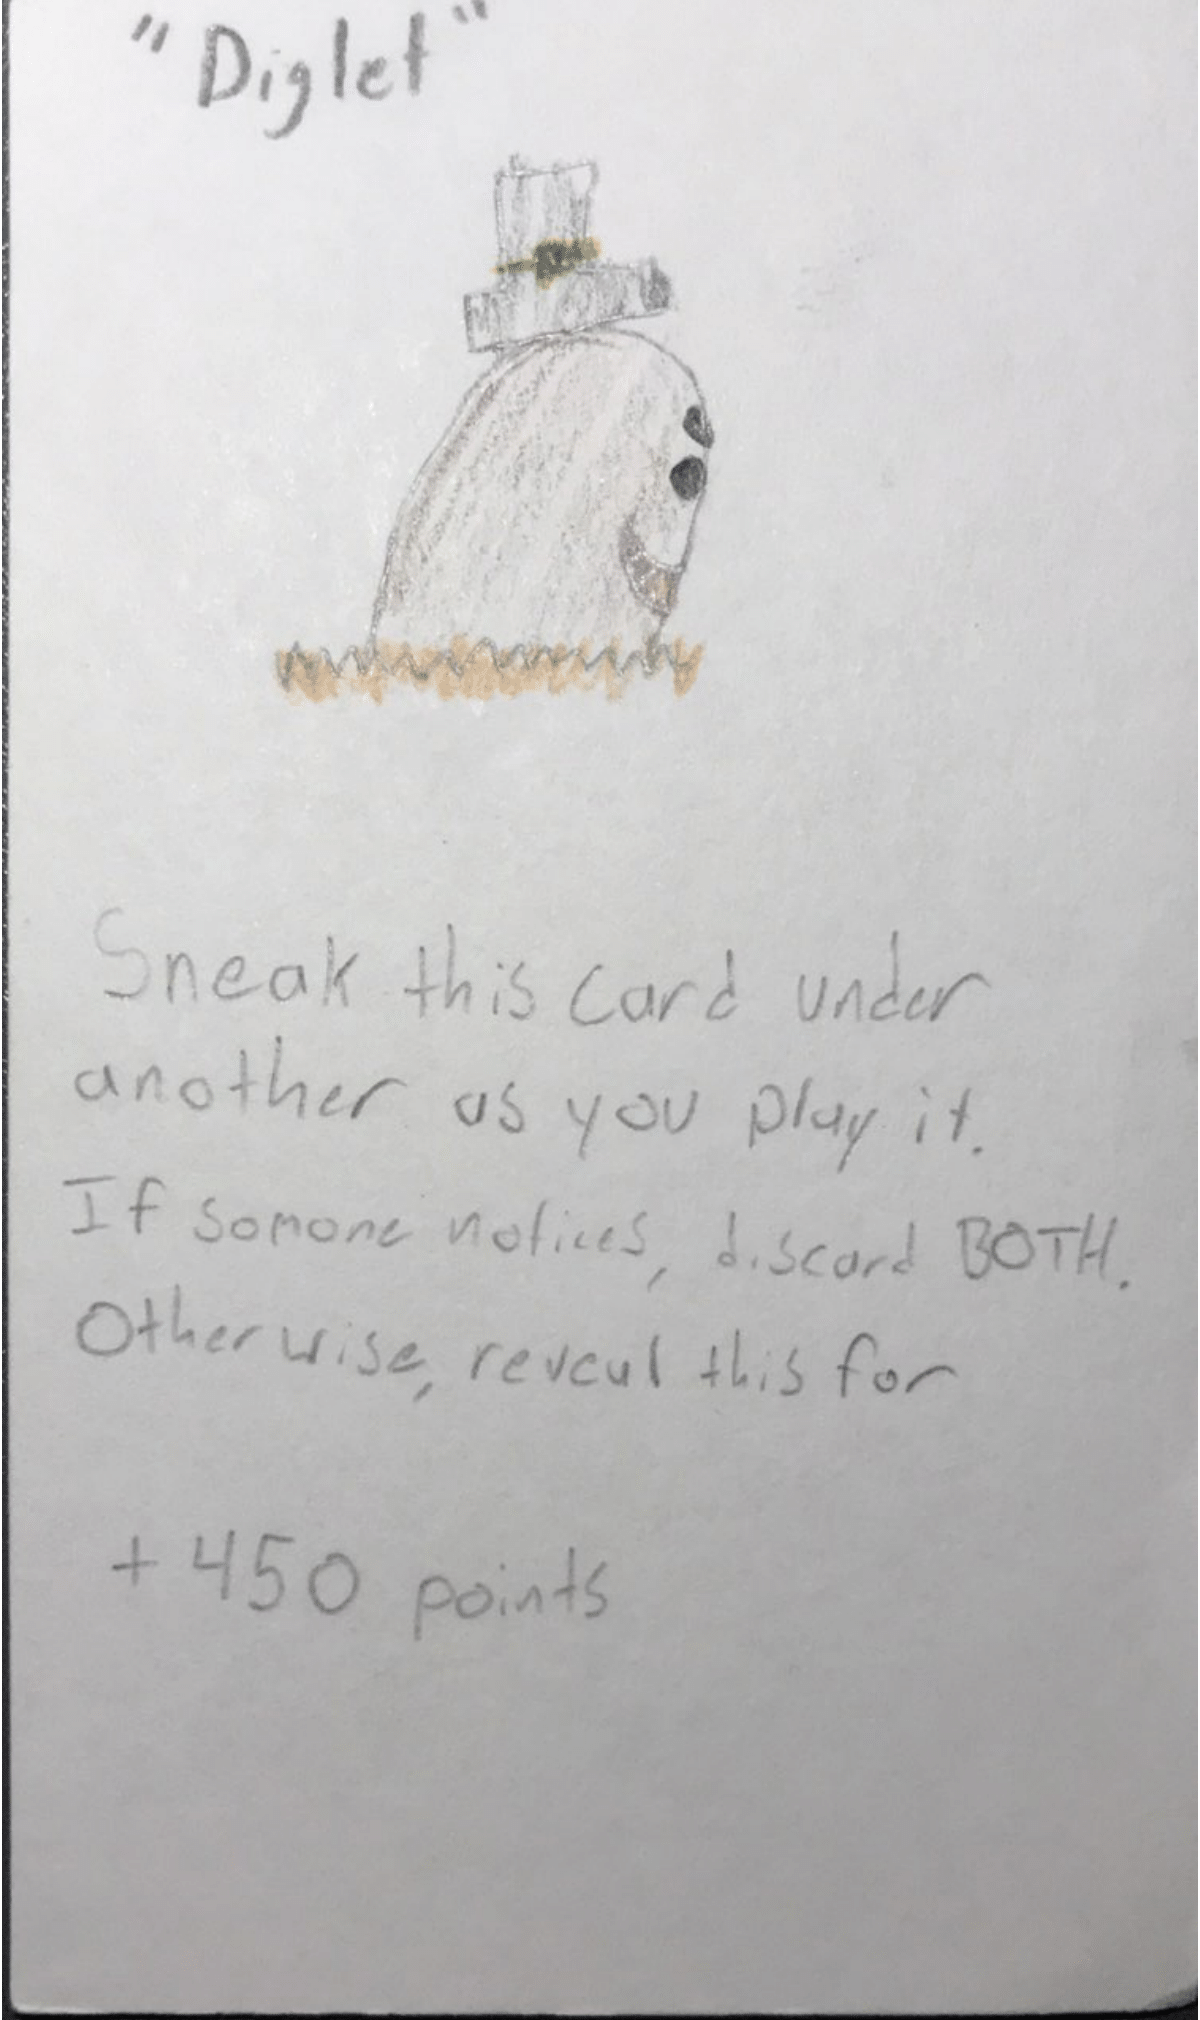 "Diglet"
Sneak this card under
another as you play it.
If somone notices, discard BOTH.
Otherwise, reveal this for
+450 points